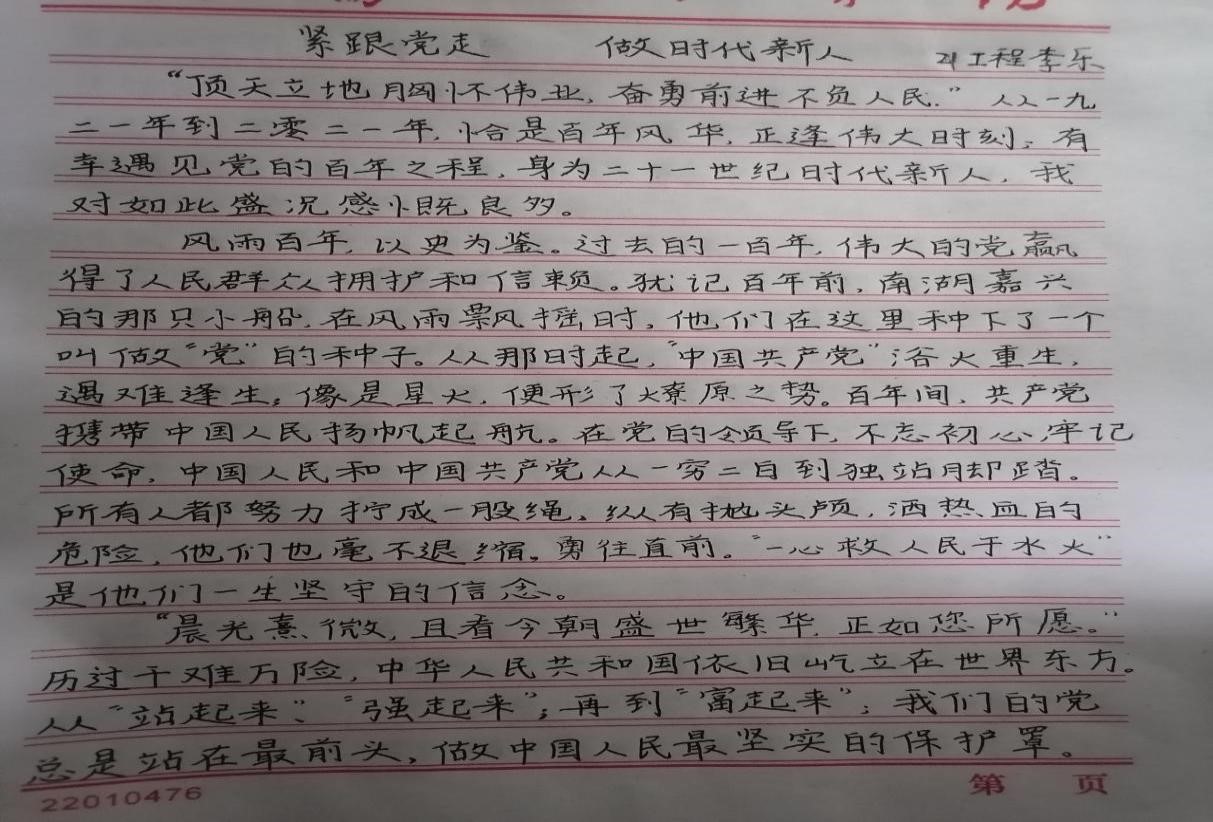 紧跟党走 做时代新人 21工程李乐
“顶天立地胸怀伟业,奋勇前进不负人民.”从一九
二一年到二零二一年,恰是百年风华,正逢伟大时刻;有
幸遇见党的百年之程,身为二十一世纪时代新人,我
对如此盛况感慨良多。
风雨百年,以史为鉴。过去的一百年,伟大的党赢
得了人民群众拥护和信赖。犹记百年前,南湖嘉兴
的那只小船,在风雨飘摇时,他们在这里种下了一个
叫做“党”的种子。从那时起,“中国共产党”浴火重生,
遇难逢生,像是星火,便形了燎原之势。百年间,共产党
携带中国人民扬帆起航。在党的领导下,不忘初心,牢记
使命,中国人民和中国共产党从一穷二白到独站脚踏。
所有人都努力拧成一股绳,纵有抛头颅,洒热血的
危险,他们也毫不退缩,勇往直前。“一心救人民于水火”
是他们一生坚守的信念。
“晨光熹微,且看今朝盛世繁华,正如您所愿。”
历过千难万险,中华人民共和国依旧屹立在世界东方。
从“站起来”、“强起来”;再到“富起来”;我们的党
总是站在最前头,做中国人民最坚实的保护罩。
22010476 第 页